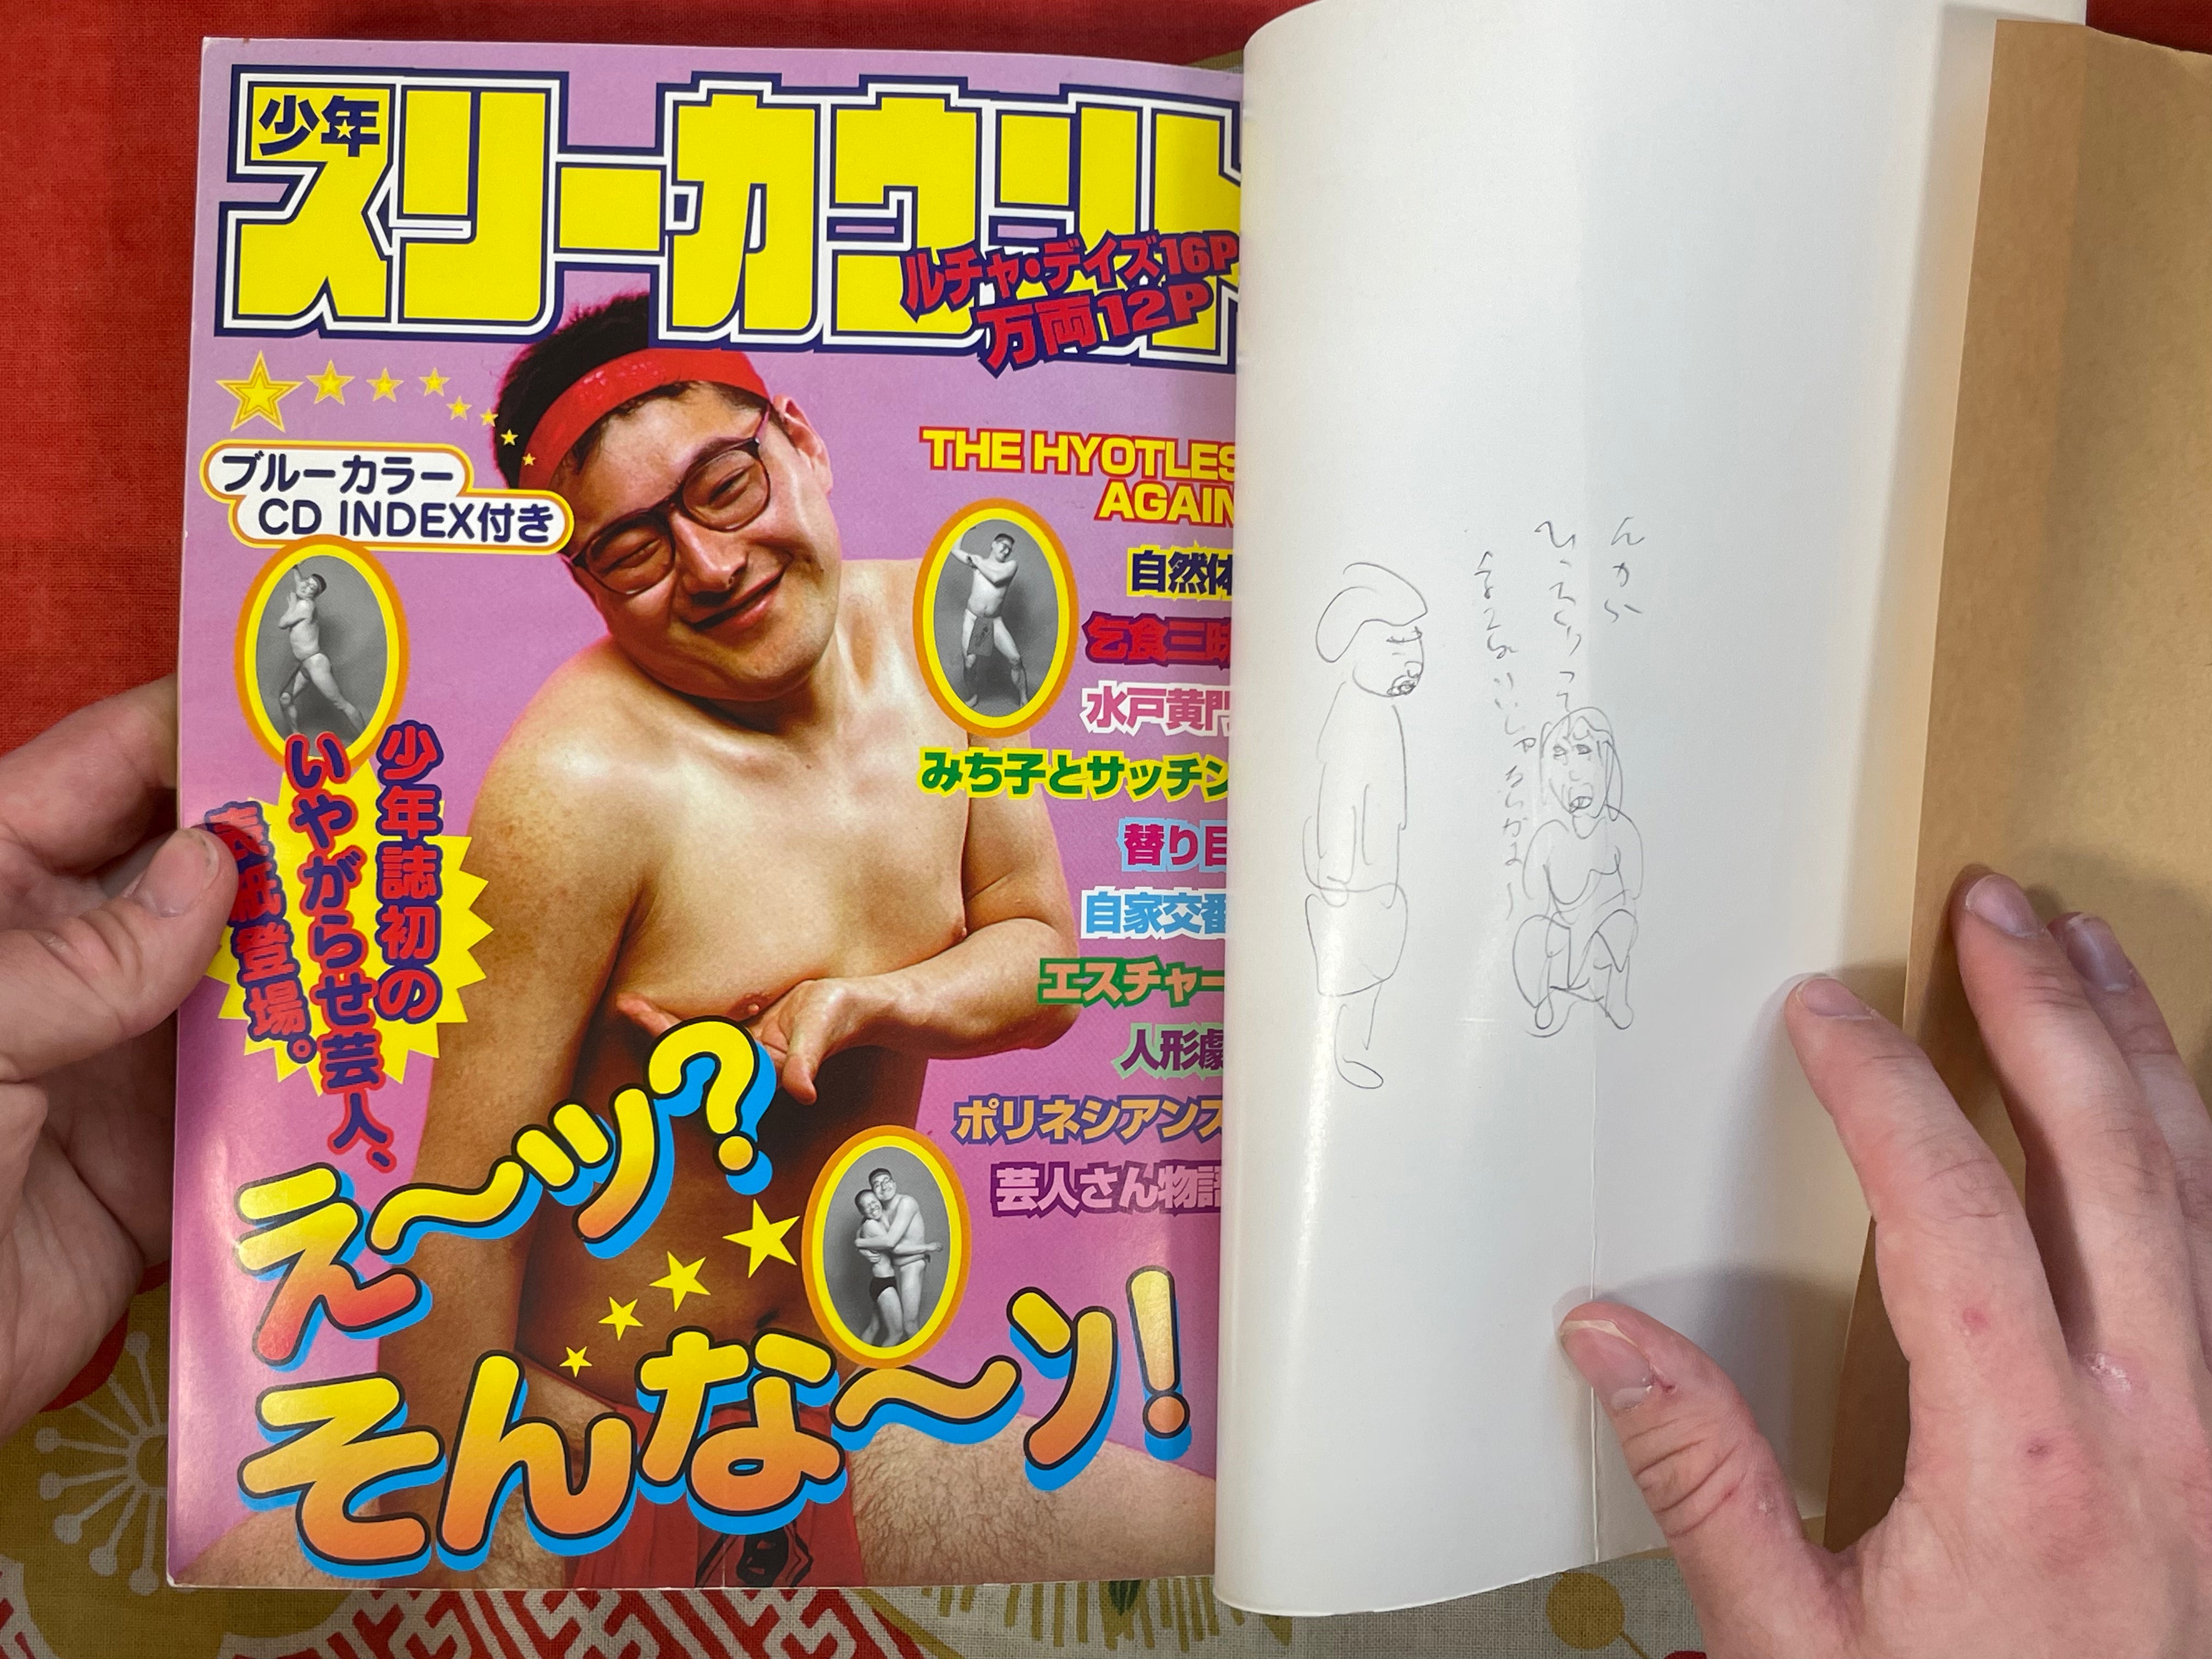 少年
スリーカウント
ルチャ・デイズ16P
万両12P
ブルーカラー
CD INDEX付き
THE HYOTLES
AGAIN
自然体
乞食三昧
水戸黄門
みち子とサッチン
替り目
自家交番
エスチャー
人形劇
ポリネシアンス
芸人さん物語
少年誌初の
いやがらせ芸人、
表紙登場。
え〜ッ?
そんな〜ン!
んから